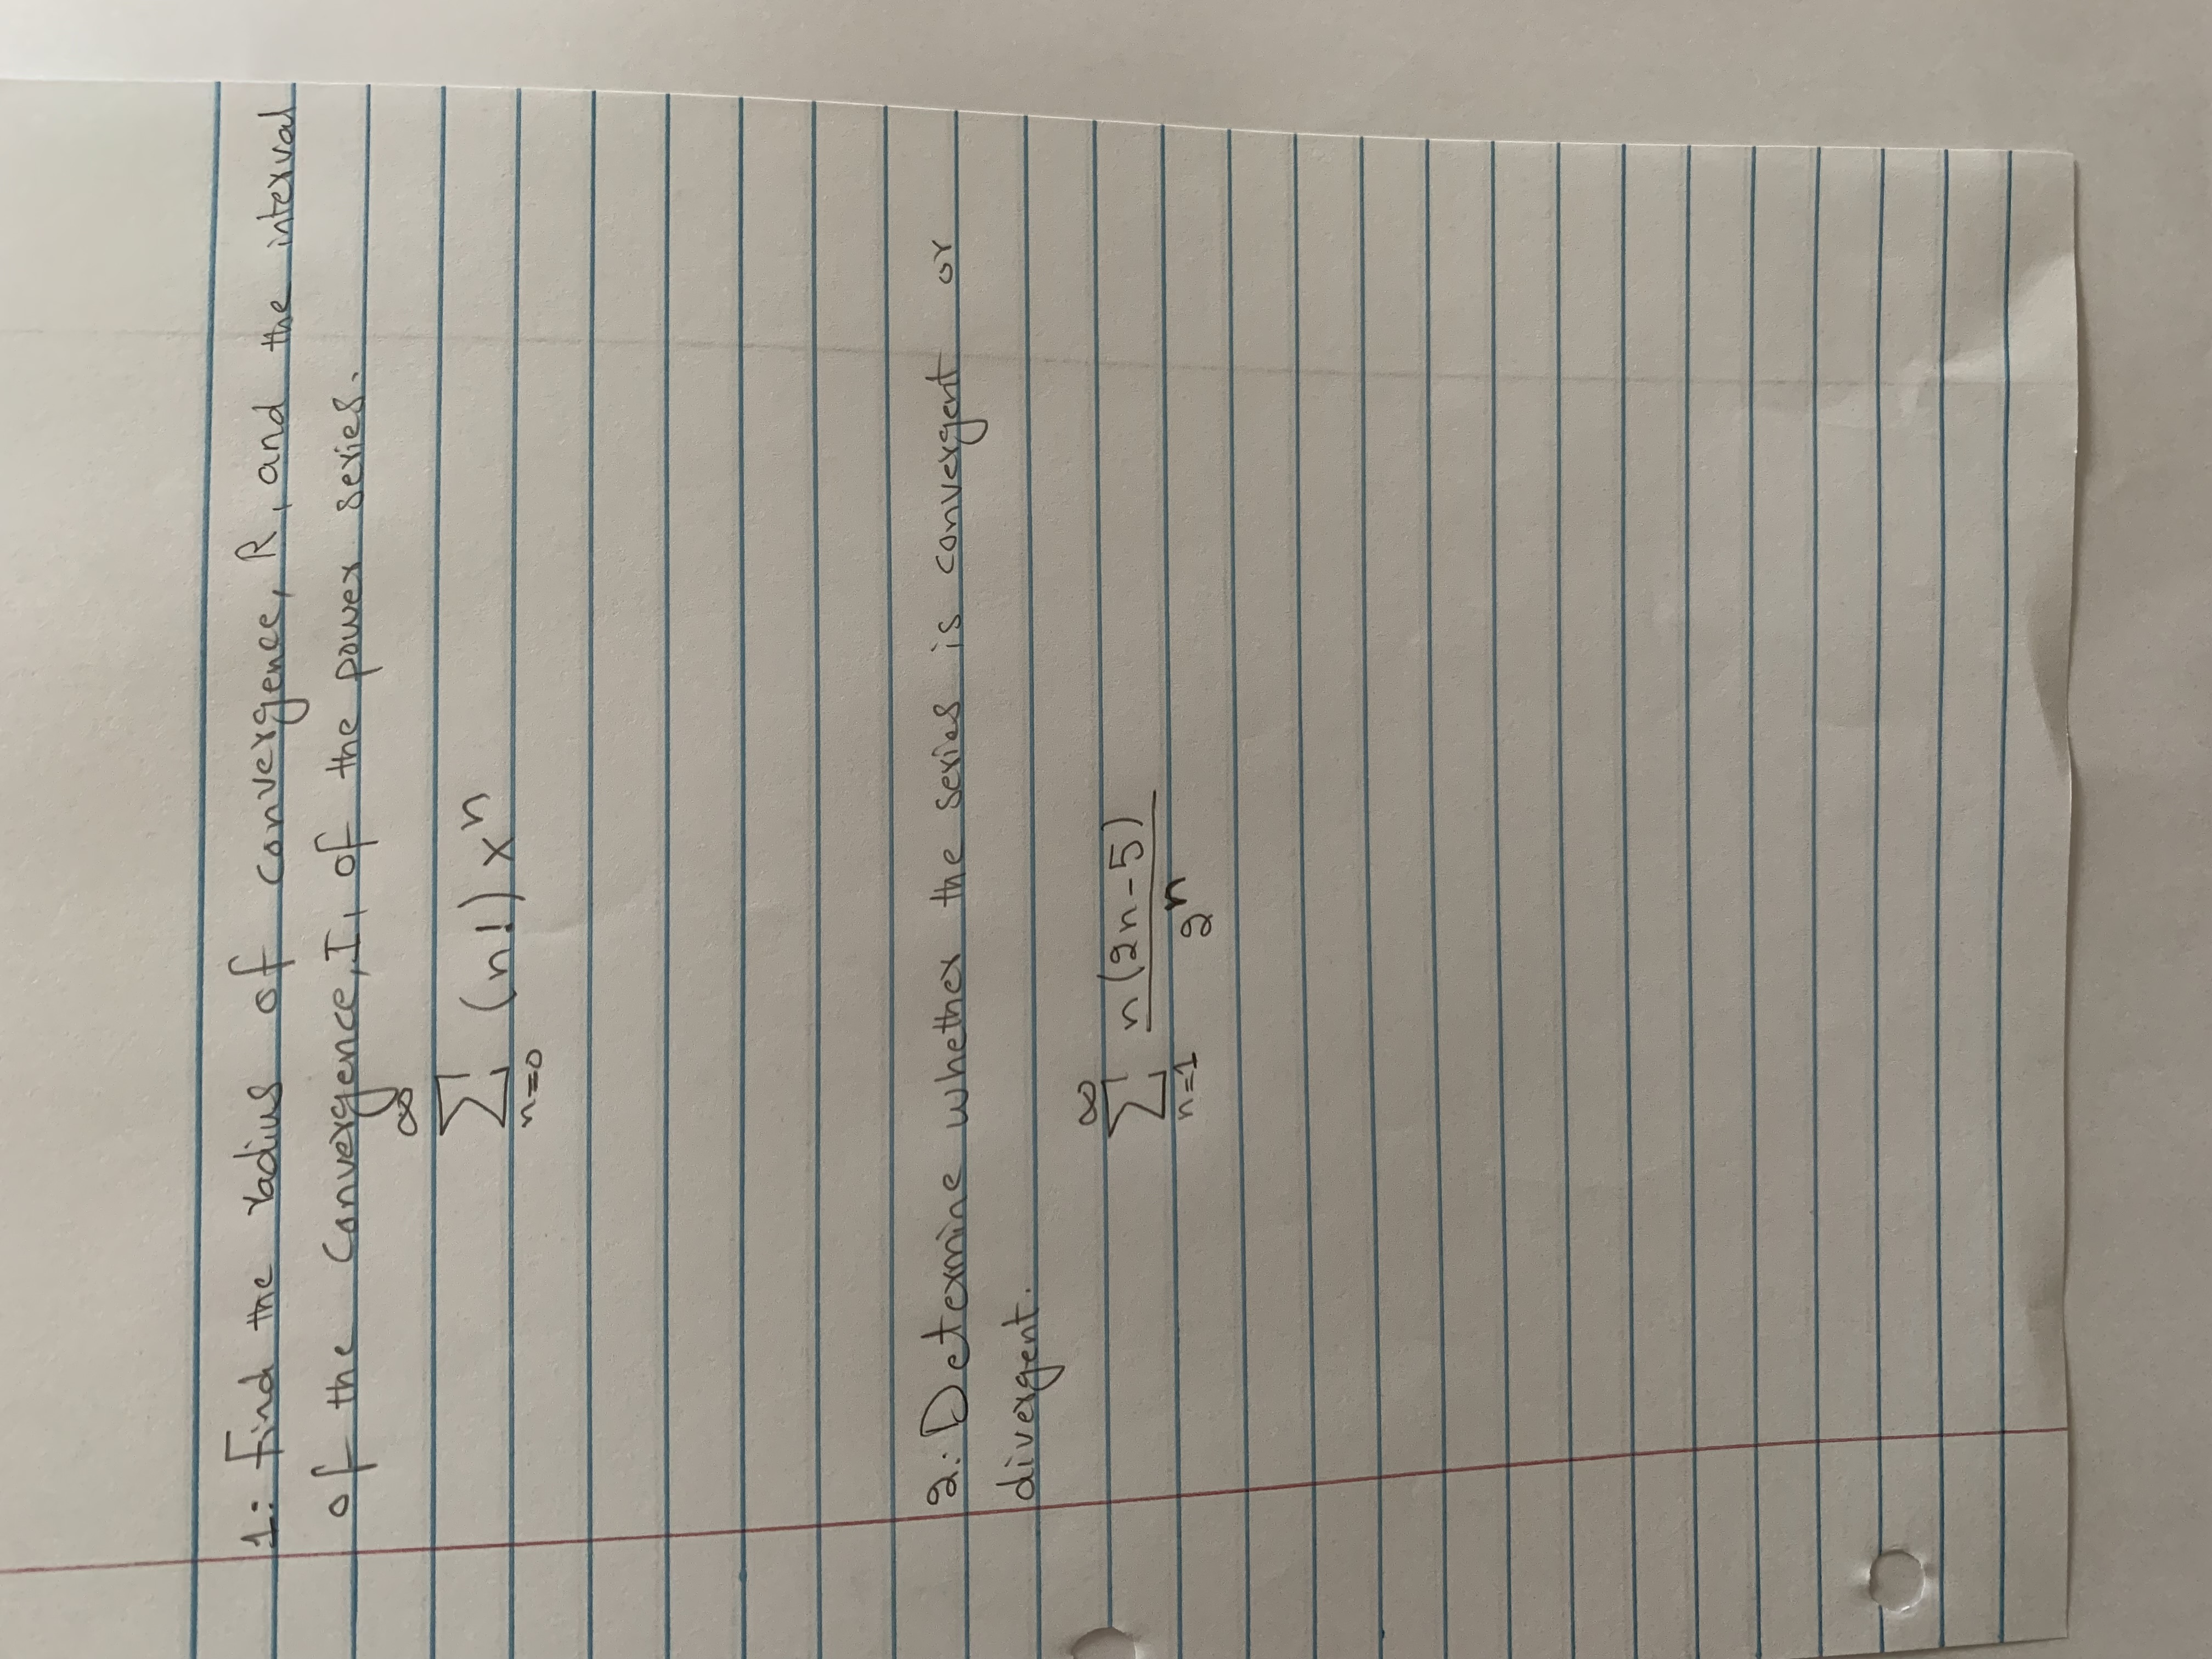 1: Find the radius of convergence, R, and the interval
of the Convergence, I, of the power series.
∞
∑ (n!) xⁿ
n=0
2: Determine whether the series is convergent or
divergent.
∞
∑ n(2n-5)
n=1 2ⁿ